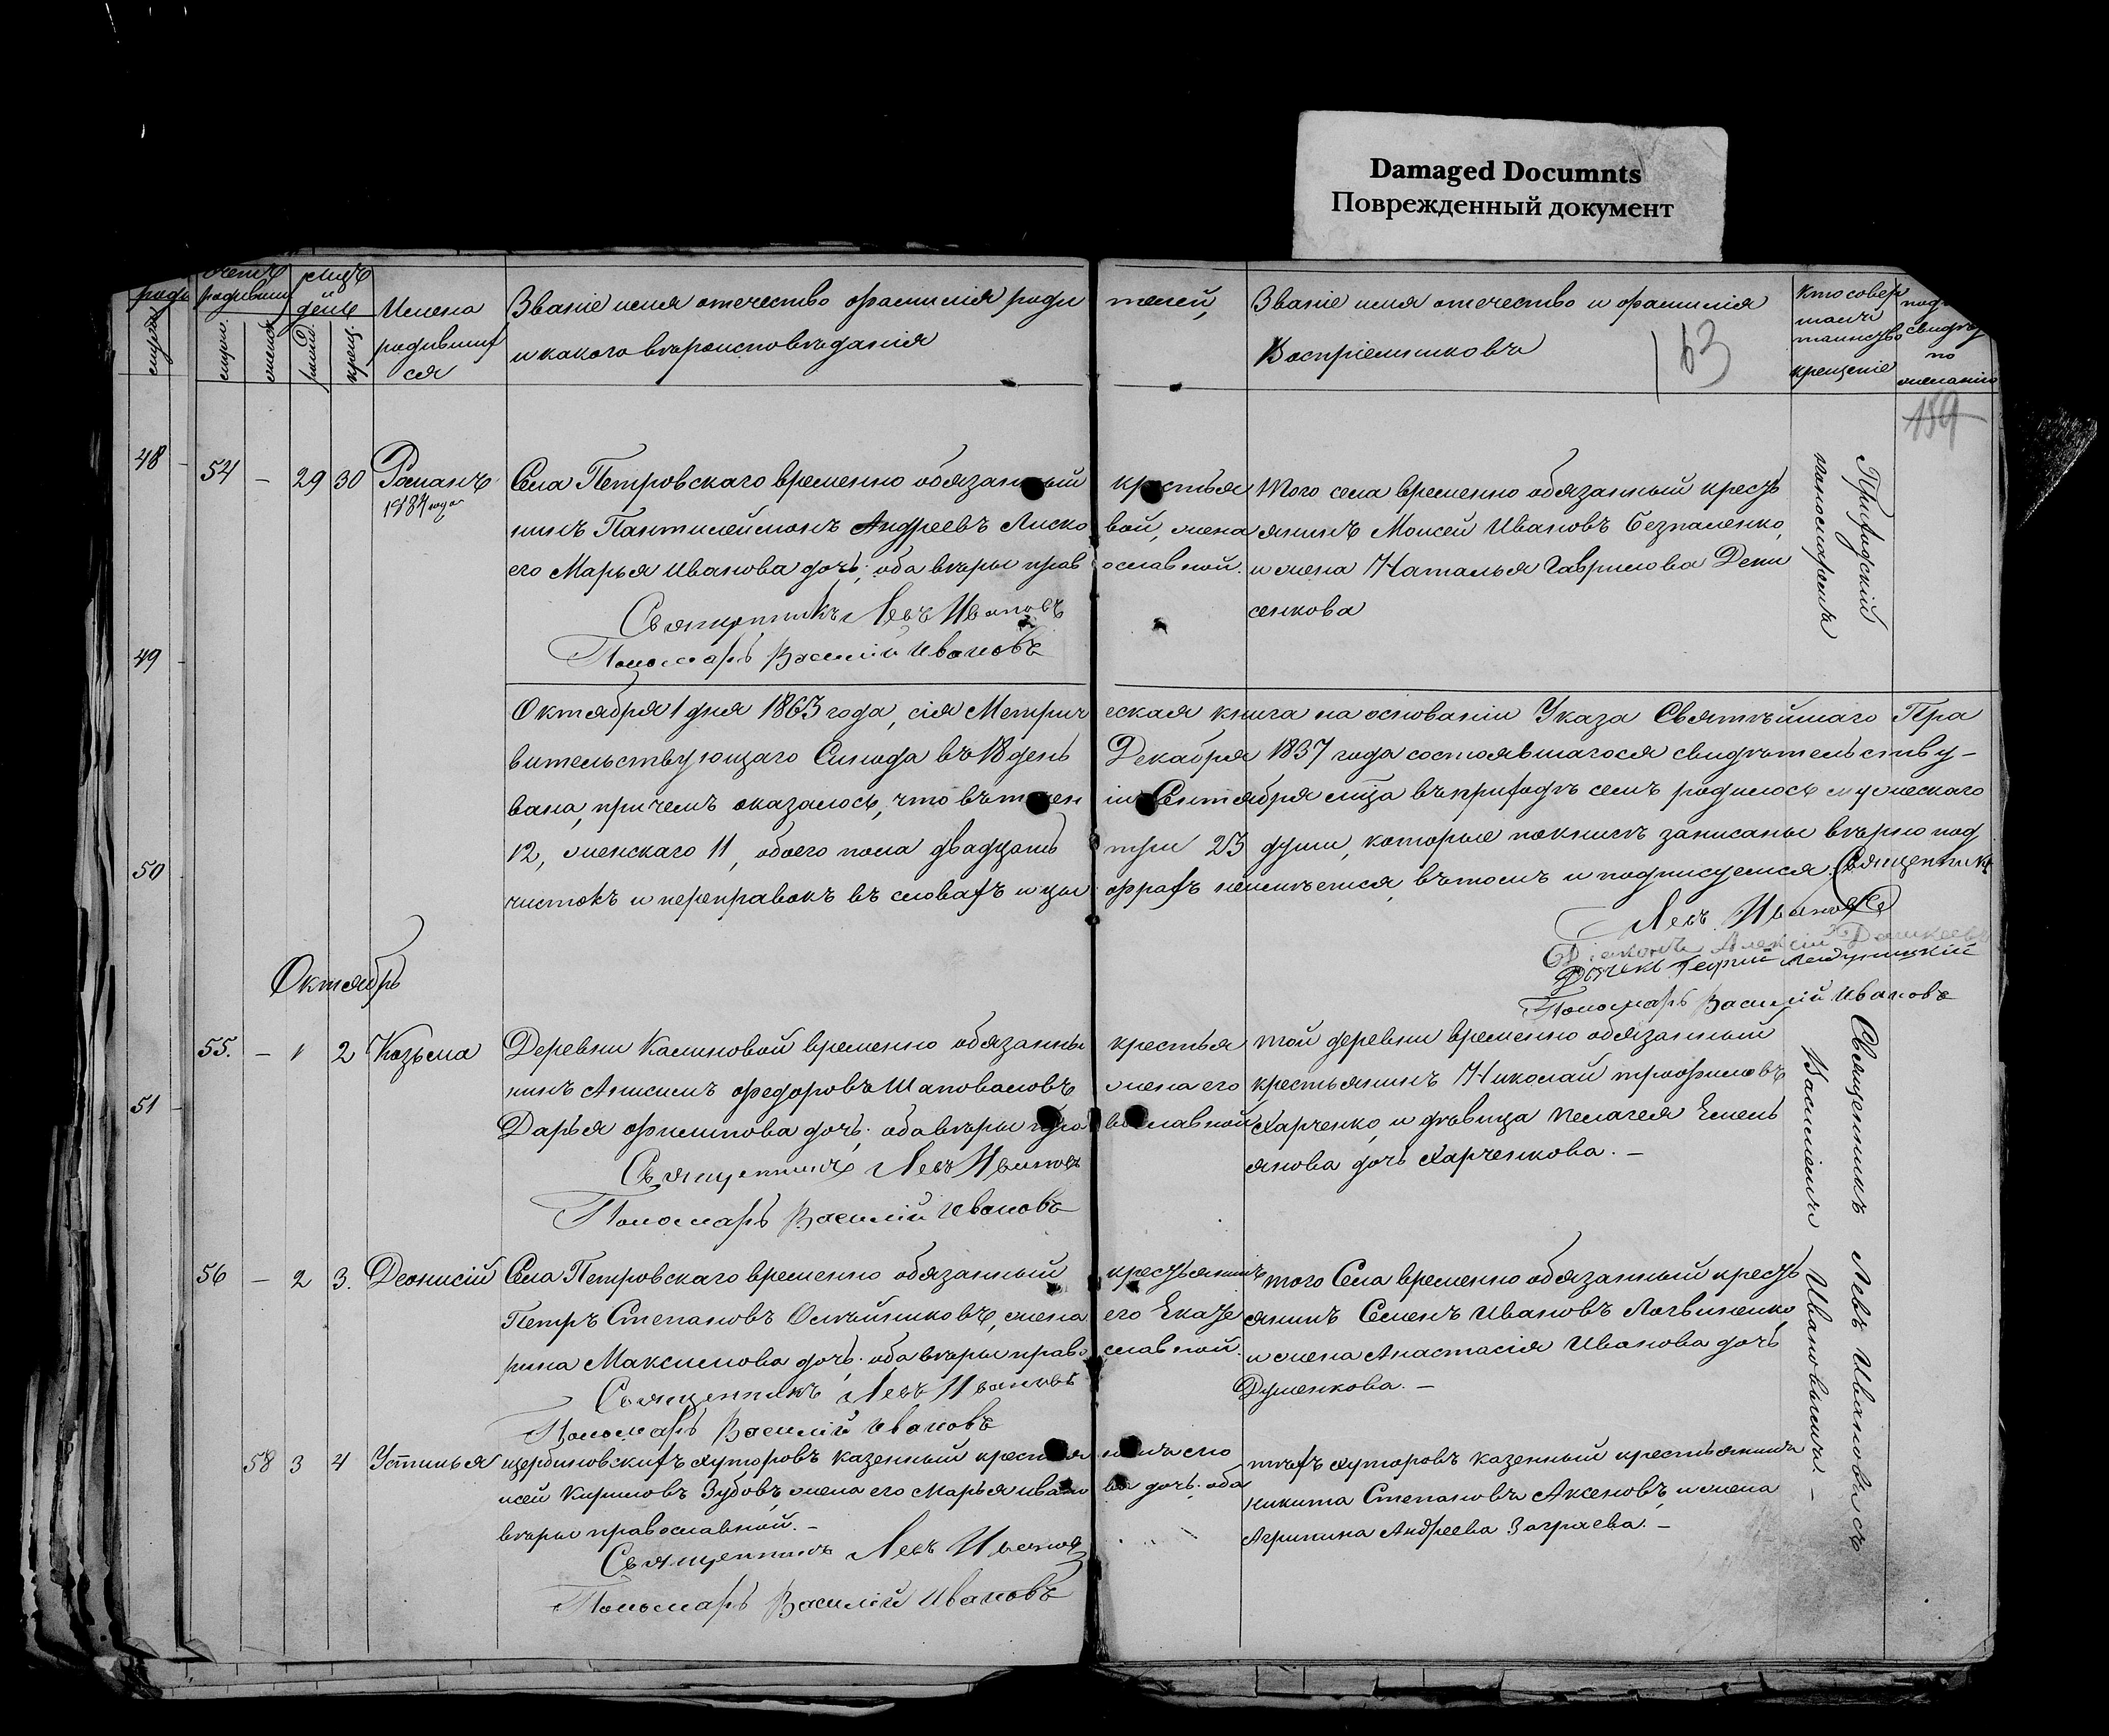 Damaged Documnts
Поврежденный документ
счетъ
родивших
мцъ
и
день
Имена
родивших
ся
Званіе имя отечество фамилія роди телей,
и какого вѣроисповѣданія
Званіе имя отечество и фамилія
Воспріемниковъ
63
Кто совер
шалъ
таинство
крещеніе
свидѣт
по
желанію
159
48
49
50
51
54 – 29 30 Романъ
Села Петровскаго временно обязанный крестья
нинъ Пантилеймонъ Андреевъ Лиско вой, жена
его Марья Иванова дочь; оба вѣры прав ославной.
Священникъ Левъ Ивановъ
Пономарь Василій Ивановъ
Того села временно обязанный кресть
янинъ Моисей Ивановъ Безпаленко,
и жена Наталья Гаврилова Дени
сенкова
Приходскій
Октября 1 дня 1863 года, сія Метрич еская книга на основаніи Указа Святѣйшаго Пра
вительствующаго Синода въ 18 день Декабря 1837 года состоявшагося свидѣтельству–
вана, причемъ оказалось, что въ теченіи Сентября мца въ приходѣ семъ родилось мужескаго
12, женскаго 11, обоего пола двадцать три 23 души, которые по книгѣ записаны вѣрно под
чистокъ и переправокъ въ словахъ и цы фрахъ неимѣется, въ томъ и подписуемся. Священникъ
Левъ Ивановъ
Діаконъ Алексій
Дьячекъ Георгій
Пономарь Василій Ивановъ
Октябрь
55. – 1 2 Козьма
Деревни Калиновой временно обязанны крестья
нинъ Анисимъ Федоровъ Шаповаловъ жена его
Дарья Филипова дочь; оба вѣры право вославной
Священникъ Левъ Ивановъ
Пономарь Василій Ивановъ
той деревни временно обязанный
крестьянинъ Николай Трофимовъ
Харченко, и дѣвица Пелагея Емель
янова дочь Харченкова. –
56 – 2 3. Деонисій
Села Петровскаго временно обязанный крестьянинъ
Петръ Степановъ Олѣйниковъ, жена его Екате
рина Максимова дочь; оба вѣры право славной.
Священникъ Левъ Ивановъ
Пономарь Василій Ивановъ
того Села временно обязанный кресть
янинъ Семенъ Ивановъ Логвиненко
и жена Анастасія Иванова дочь
Думенкова. –
58 3 4 Устинья
щербиновскихъ хуторовъ казенный крестья
сей Кириловъ Зубовъ, жена его Марья Ивано ва дочь; оба
вѣры православной. –
Священникъ Левъ Ивановъ
Пономарь Василій Ивановъ
тѣхъ хуторовъ казенный крестьянинъ
Никита Степановъ Аксеновъ, и жена
Агрипина Андреева Заграева. –
Священникъ Левъ Ивановъ съ
Ивановымъ. –